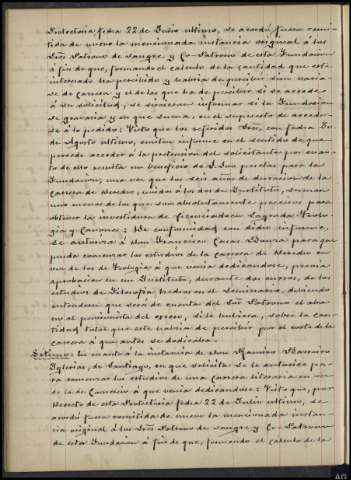 Protectoria fecha 22 de Julio último, se acordó fuera remi-
tida de nuevo la mencionada instancia original á los
Sres Patrono de Sangre y Co-Patrono de esta Fundación
á fin de que, formando el cálculo de la cantidad que este
interesado ha percibido y habría de percibir
de carrera y el de los que ha de percibir si se accede
á su solicitud, se sirvieran informar si la Fundación
se gravaría y en que suma, en el supuesto de acceder-
se á lo pedido: Visto que los referidos Sres, con fecha
de Agosto último, emiten informe en el sentido de que
procede acceder á la pretensión del solicitante por cuan-
to de ello resulta un beneficio de pesetas para la
Fundación, una vez que los seis años de duración de la
Carrera de Derecho, unidos á los dos de Instituto, suman
uno menos de los que son absolutamente precisos para
obtener la investidura de licenciado en Sagrada Teolo-
gía y Cánones: De conformidad con dicho informe,
se autoriza á Don Francisco Casas para que
pueda comenzar los estudios de la carrera de Derecho en
vez de los de Teología á que venía dedicándose, previa
aprobación en un Instituto, durante dos cursos, de los
estudios de Filosofía hechos en el Seminario, debiendo
entenderse que será de cuenta del Sor Patrono el abo-
no al pensionista del exceso, si le hubiera, sobre la can-
tidad total que este habría de percibir por el resto de la
carrera á que antes se dedicaba.
Séptimo: En cuanto á la instancia de Don Ramiro Barreiro
Iglesias, de Santiago, en que solicita se le autorice pa-
ra comenzar los estudios de una Carrera literaria en vez
de la de Comercio á que venía dedicándose: Visto que, por
decreto de esta Protectoria fecha 22 de Julio último, se
acordó fuera remitida de nuevo la mencionada instan-
cia original á los Sres Patrono de Sangre y Co-Patrono
de esta Fundación á fin de que, formando el cálculo de la